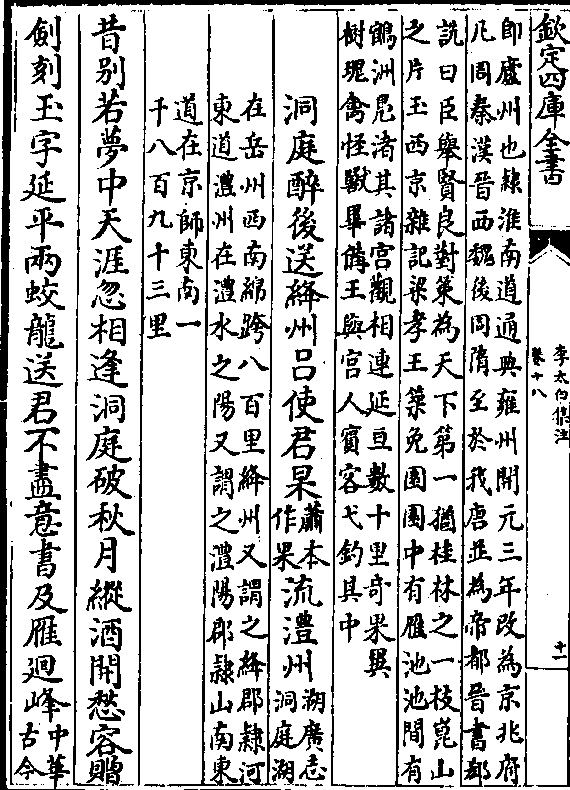 欽定四庫全書
李太白集注
卷十八
十一
即廬州也隸淮南道通典雍州開元三年改為京兆府
凡周秦漢晉西魏後周隋至於我唐並為帝都晉書郄
詵曰臣舉賢良對策為天下第一猶桂林之一枝崑山
之片玉西京雜記梁孝王築兔園園中有雁池池間有
鶴洲鳧渚其諸宮觀相連延亘數十里奇果異
樹瑰禽怪獸畢備王與宮人賓客弋釣其中
洞庭醉後送絳州吕使君杲蕭本作果流澧州湖廣志洞庭湖
在岳州西南綿跨八百里絳州又謂之絳郡隸河
東道澧州在澧水之陽又謂之澧陽郡隸山南東
道在京師東南一
千八百九十三里
昔别若夢中天涯忽相逢洞庭破秋月縱酒開愁容贈
劍刻玉字延平兩蛟龍送君不盡意書及雁迴峰中華古今